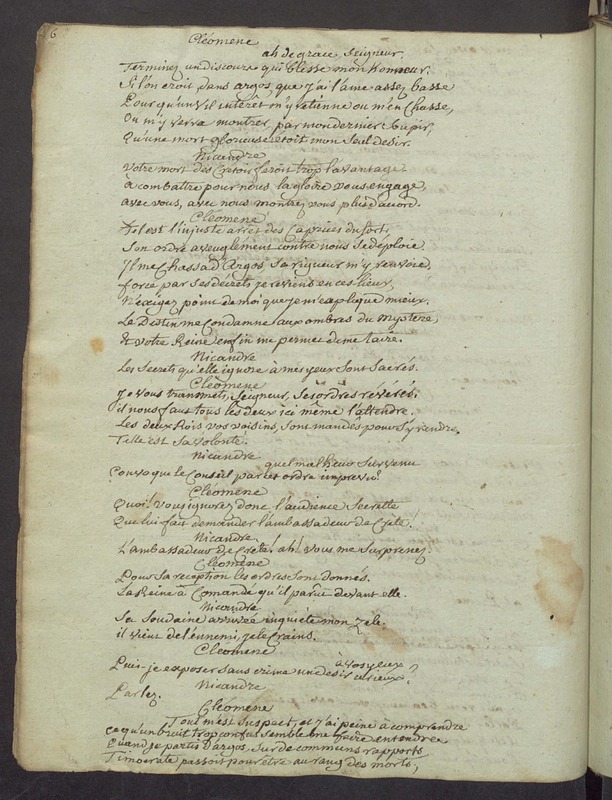 6
Cléomene
ah de grace Seigneur.
Terminez un discours qui blesse mon honneur.
Si l'on croit dans argos que j'ai l'ame assez basse
Pour qu'un vil interêt m'y retienne ou m'en Chasse,
On m'y verra montrer, par mon dernier Soupir,
Qu'une mort glorieuse étoit mon seul desir.
Nicandre
Votre mort des Cretois feroit trop l'avantage
à combattre pour nous la gloire vous engage,
avec vous, avec nous montrez vous plus d'accord.
Cléomene
Tel est l'injuste arrêt des Caprices du sort,
Son ordre aveuglément contre nous se déploie.
Il me Chassa d'Argos, sa rigueur m'y renvoie,
forcé par ses decrets je reviens en ces lieux,
N'éxigez point de moi que je m'explique mieux.
Le Destin me Condamne aux ombres du Mystere,
Et votre Reine enfin me permet de me taire.
Nicandre
Les Secrets qu'elle ignore à mes yeux sont Sacrés.
Cléomene
Je vous transmets, Seigneur, ses ordres révérés.
il nous faut tous les deux ici même l'attendre.
Les deux Rois vos voisins, sont mandés pour s'y rendre.
Telle est sa volonté.
Nicandre
quel malheur survenu
Convoque le Conseil par cet ordre imprevu?
Cléomene
Quoi! vous ignorez donc l'audience Secrette
Que lui fait demander l'ambassadeur de Crete!
Nicandre
L'ambassadeur de Crete! ah! vous me surprenez.
Cléomene
Pour sa reception les ordres sont donnés.
La Reine a Comandé qu'il parut devant elle.
Nicandre
Sa Soudaine arrivée inquiéte mon Zele
il vient de l'ennemi, je le Crains.
Cléomene
à vos yeux
Puis-je exposer sans crime un desir curieux?
Nicandre
Parlez.
Cléomene
Tout m'est suspect, et j'ai peine à comprendre
ce qu'un bruit trop confus semble me faire entendre
Quand je partis d'argos, sur de communs rapports
Timocrate passoit pour être au rang des morts,